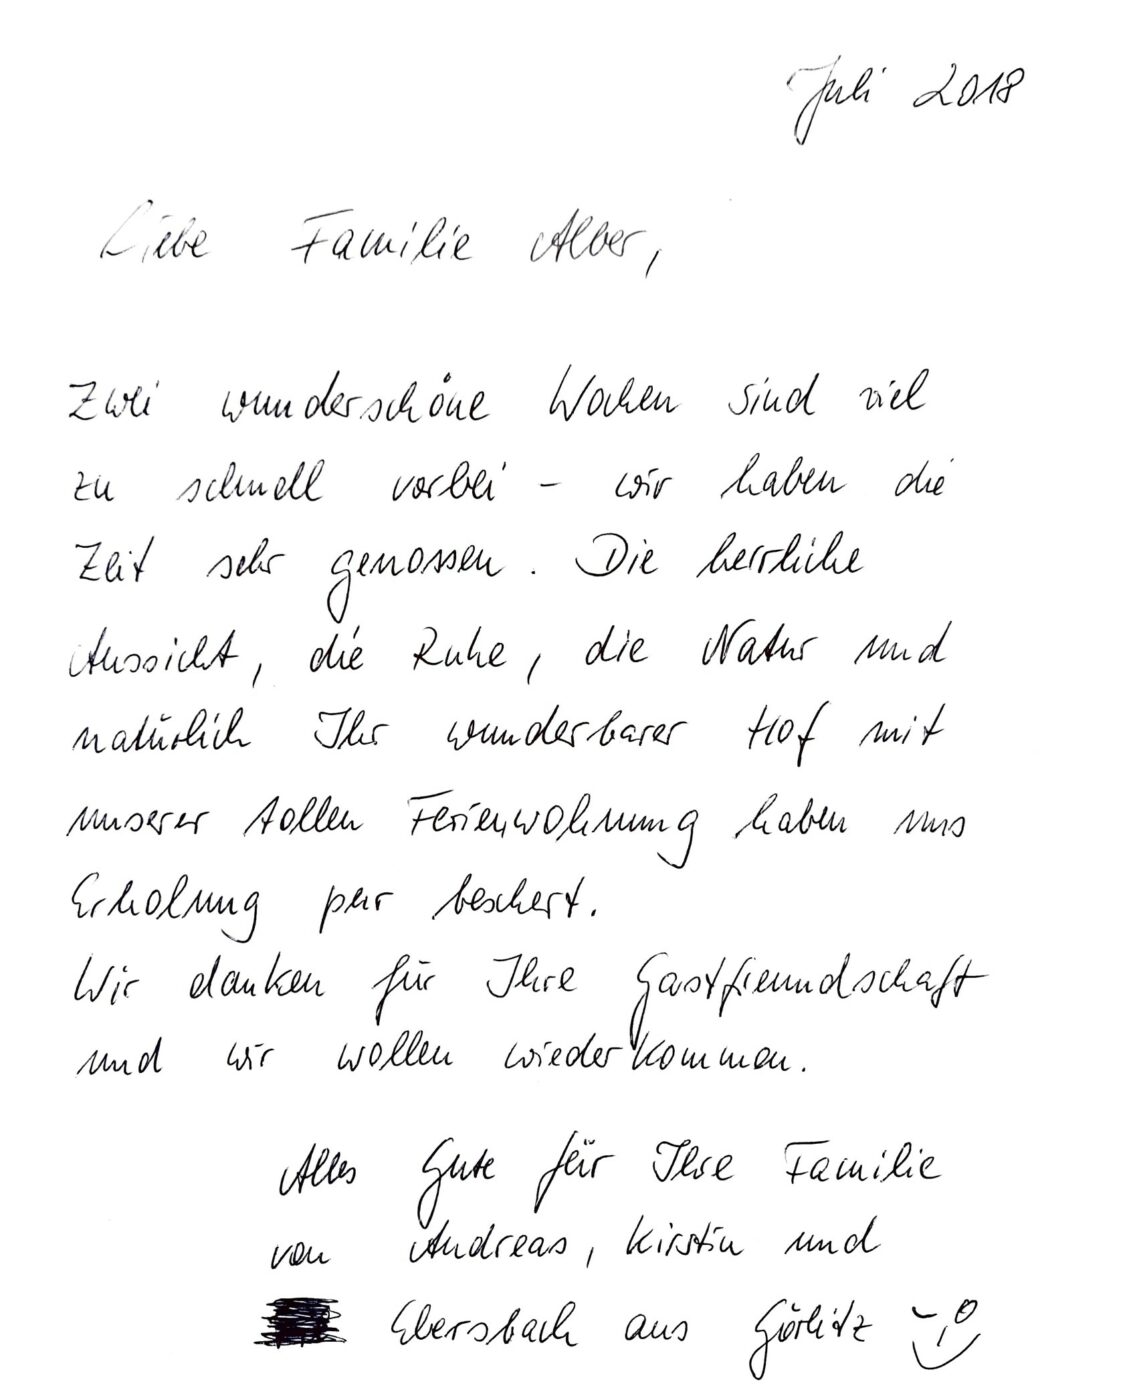 Juli 2018
Liebe Familie Alber,
Zwei wunderschöne Wochen sind viel
zu schnell vorbei – wir haben die
Zeit sehr genossen. Die herrliche
Aussicht, die Ruhe, die Natur und
natürlich Ihr wunderbarer Hof mit
unserer tollen Ferienwohnung haben uns
Erholung pur beschert.
Wir danken für Ihre Gastfreundschaft
und wir wollen wiederkommen.
Alles Gute für Ihre Familie
von Andreas, Kirstin und
Ebersbach aus Görlitz